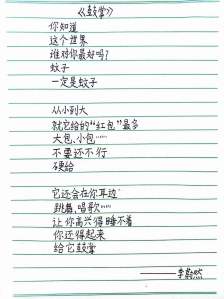 《鼓掌》
你知道
这个世界
谁对你最好吗?
蚊子
一定是蚊子
从小到大
就它给的“红包”最多
大包、小包……
不要还不行
硬给
它还会在你耳边
跳舞、唱歌……
让你高兴得睡不着
你还得起来
给它鼓掌
——李然